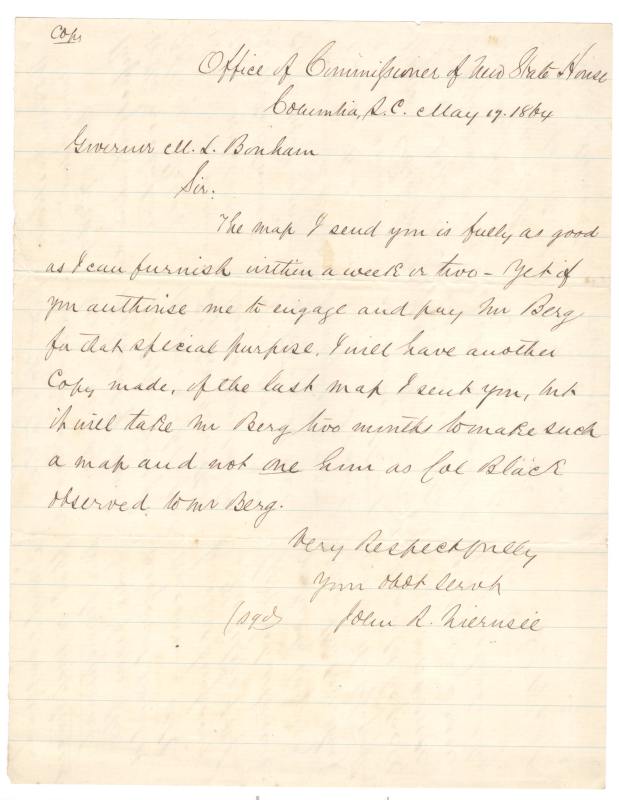 Copy
Office of Commissioner of New State House
Columbia, S.C. May 19. 1864
Governor M. L. Bonham
Sir:
The map I send you is fully as good
as I can furnish within a week or two – Yet if
you authorise me to engage and pay Mr Berg
for that special purpose, I will have another
Copy made, of the last map I sent you, but
it will take Mr Berg two months to make such
a map and not one him as Col Black
observed to Mr Berg.
Very Respectfully
Your obdt Servt
(sgd) John R. Niernsee